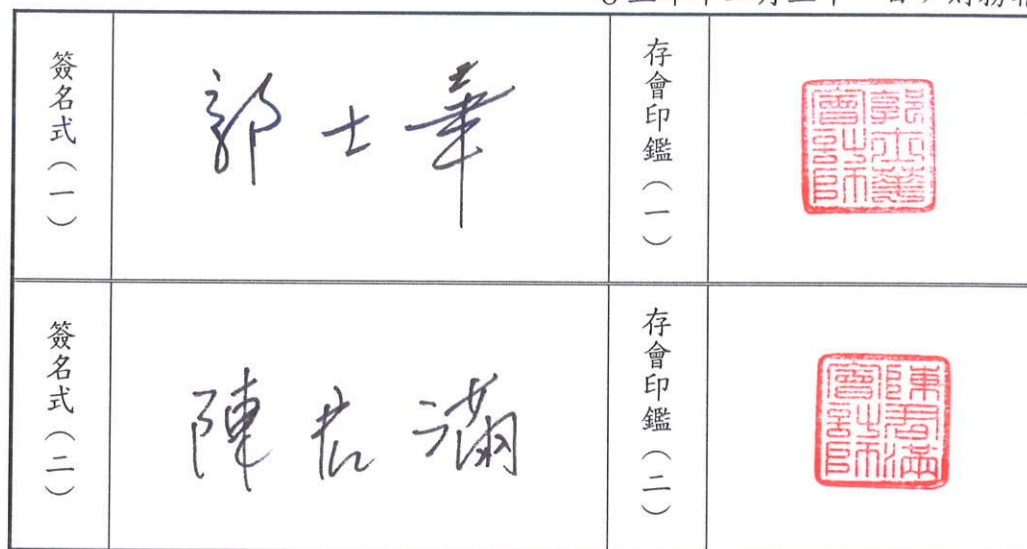 財務
簽名式（一）
郭士華
存會印鑑（一）
郭士華會計師
簽名式（二）
陳君滿
存會印鑑（二）
陳君滿會計師